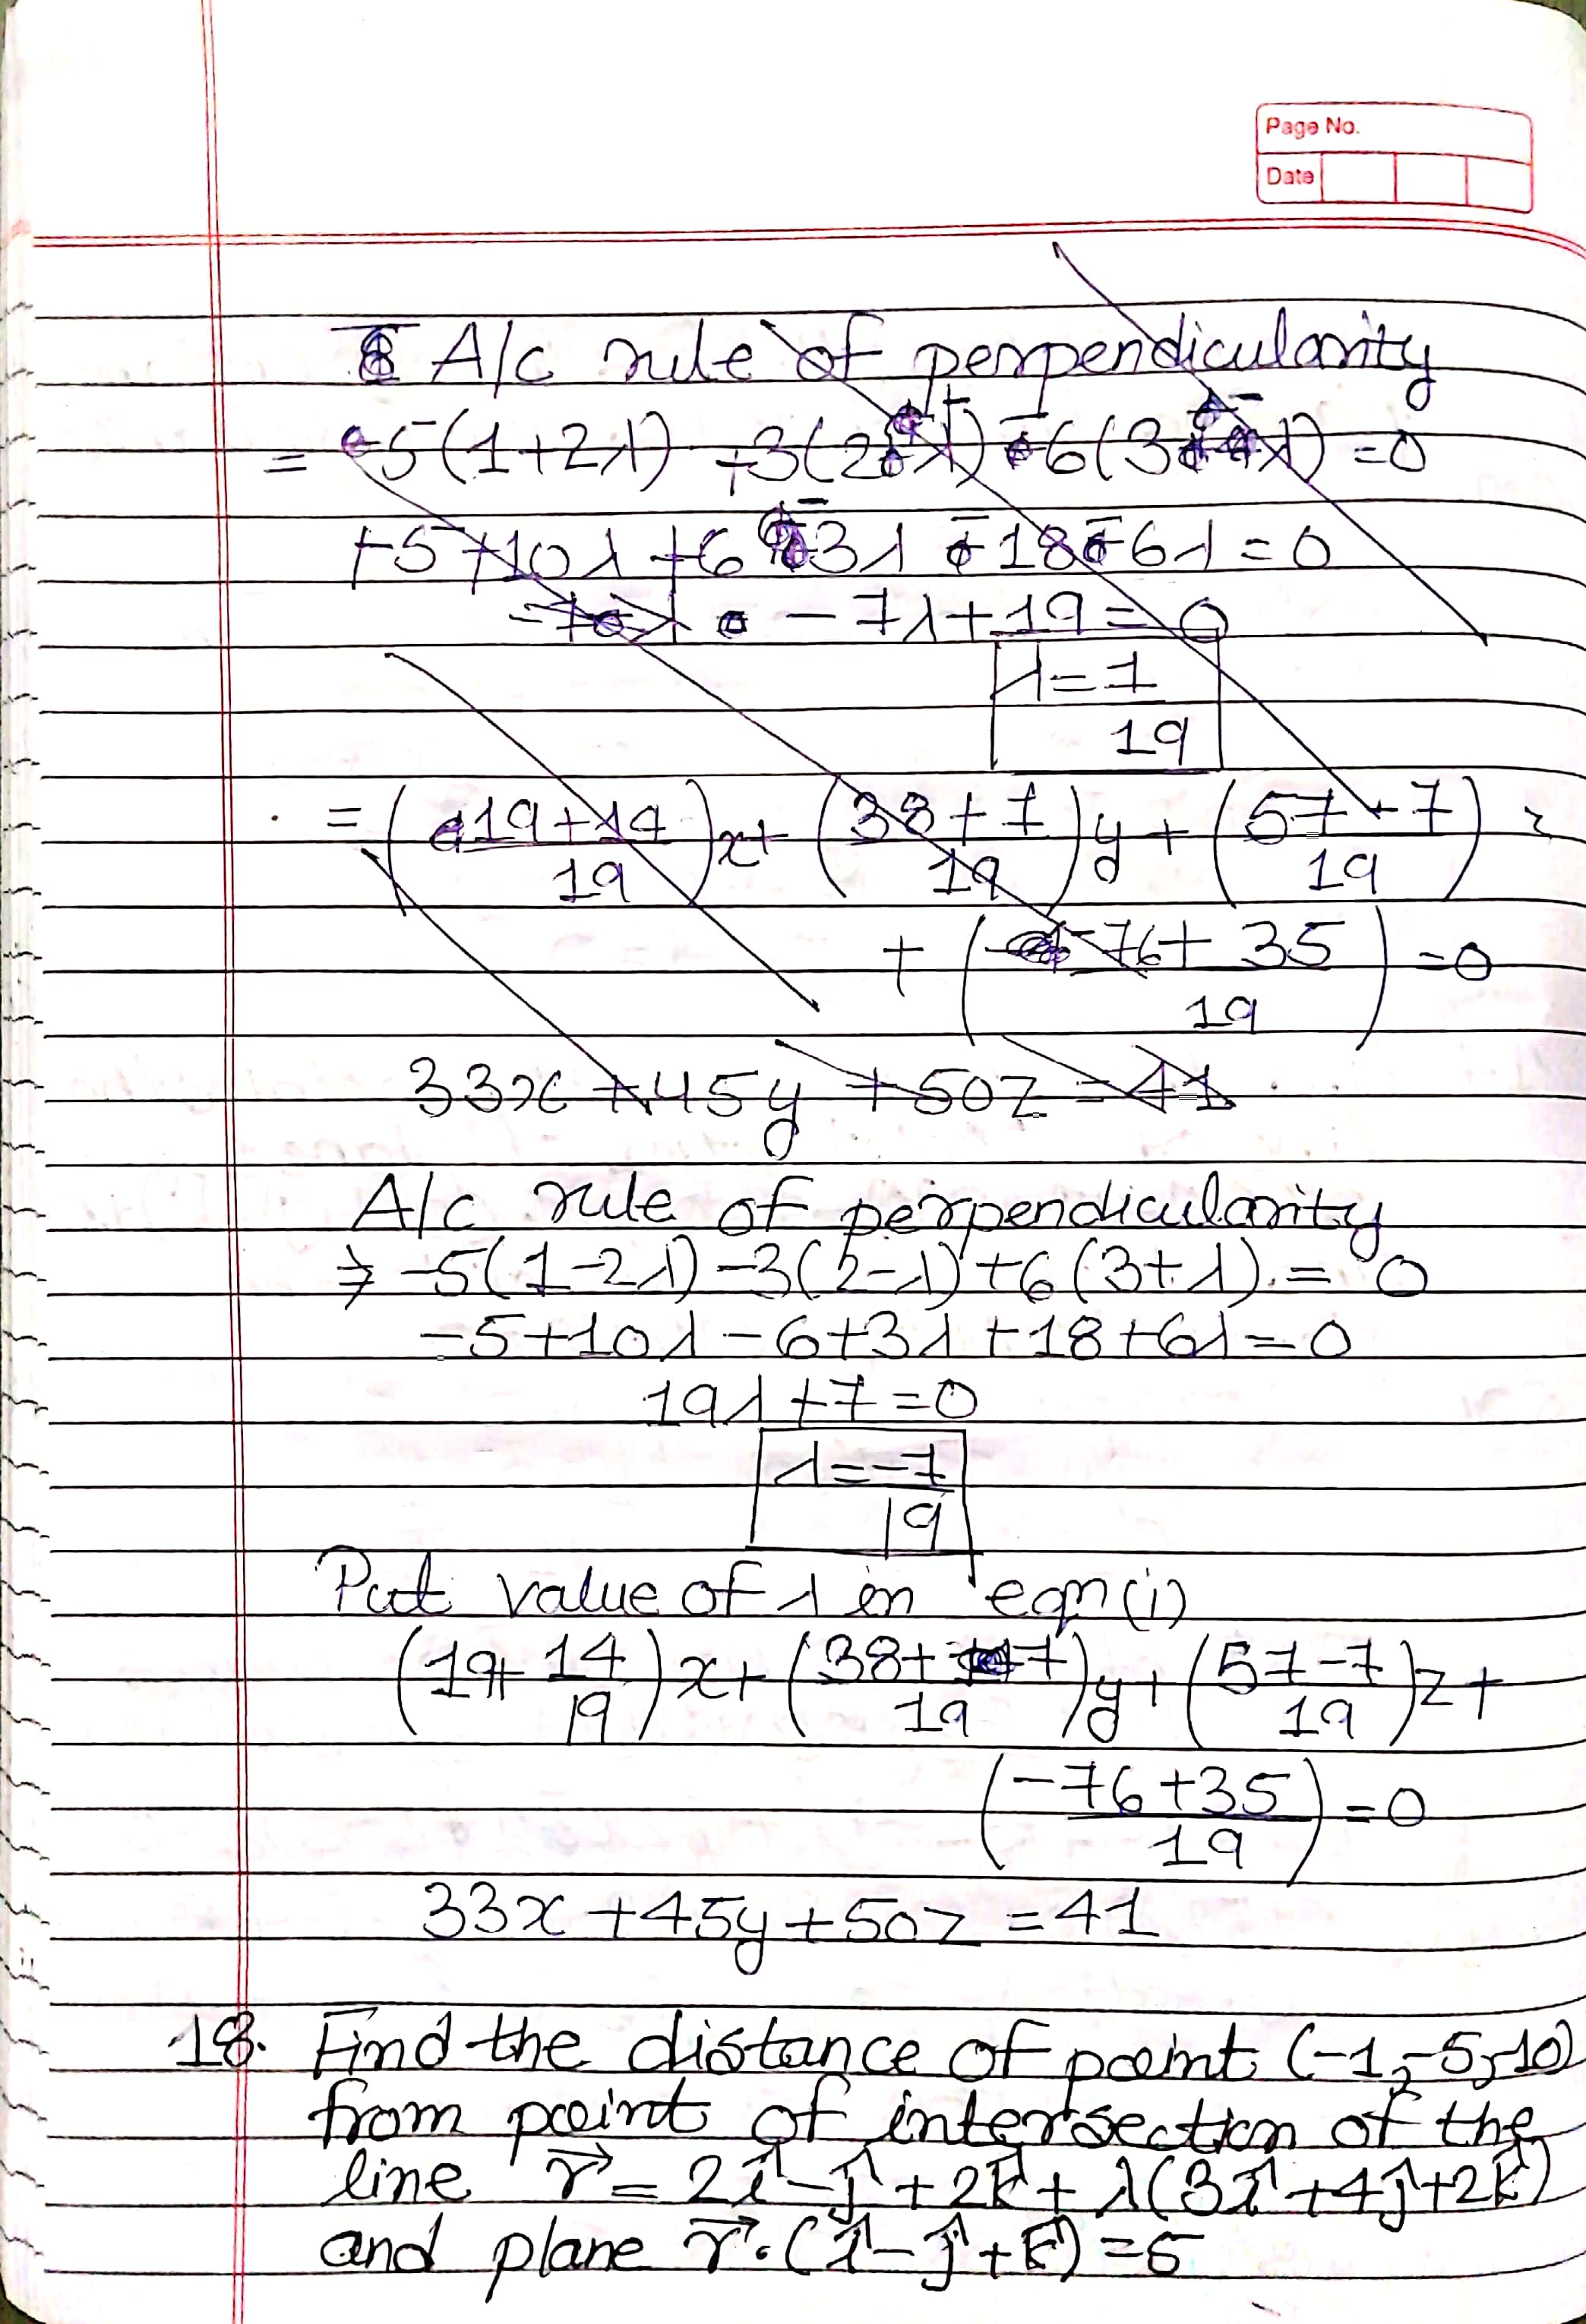 Page No.
Date
A/c rule of perpendicularity
= -5(1+2λ) +3(2+λ) -6(3-λ) =0
+5+10λ+6-3λ+18-6λ=0
- 7λ+19=0
λ=7/19
= (19+14/19)x+ (38+7/19)y + (57+7/19)z
+ (-76+35/19) =0
33x+45y+50z=41
A/c rule of perpendicularity
⇒ -5(1-2λ)-3(2-λ)+6(3+λ)=0
-5+10λ-6+3λ+18+6λ=0
19λ+7=0
λ=-7/19
Put value of λ in eqn(i)
(19+14/19)x+(38+7/19)y+(57-7/19)z+
(-76+35/19)=0
33x+45y+50z=41
18. Find the distance of point (-1,-5,-10)
from point of intersection of the
line r⃗ = 2î-ĵ+2k̂+λ(3î+4ĵ+2k̂)
and plane r⃗.(î-ĵ+k̂)=5